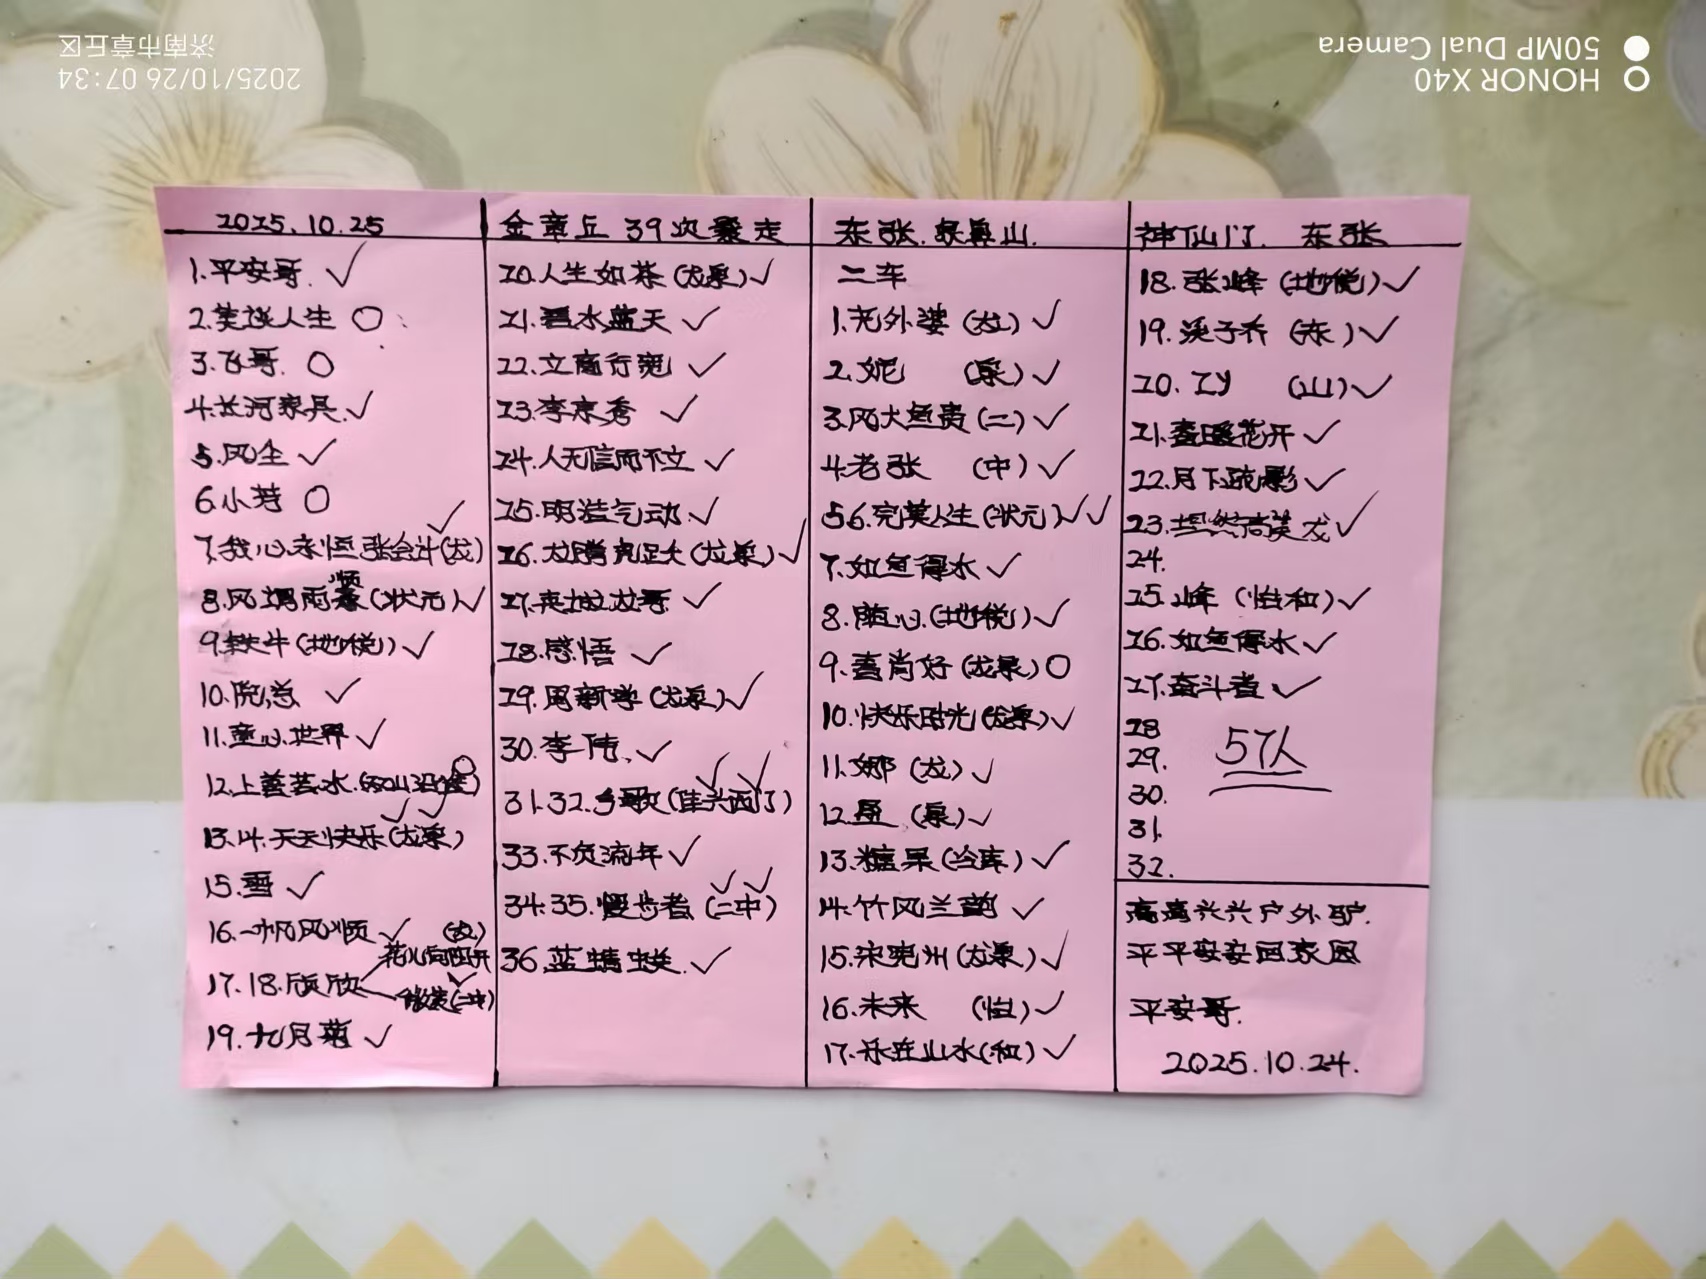 2025.10.25
1.平安哥. ✓
2.笑谈人生 ○
3.飞哥. ○
4.长河家具. ✓
5.风尘 ✓
6.小芳 ○
7.我心永恒张会计(龙) ✓
8.风调雨顺(状元) ✓
9.铁牛(地税) ✓
10.院总 ✓
11.童心世界 ✓
12.上善若水. ○
13.14.天天快乐(龙泉) ✓✓
15.雪 ✓
16.一帆风顺 ✓ (龙)
17.18.欣欣 花儿向阳开
(二中) ✓
19.九月菊 ✓
金章丘 39次聚走
20.人生如茶(龙泉) ✓
21.碧水蓝天 ✓
22.立商行宽 ✓
23.李京秀 ✓
24.人无信而不立 ✓
25.明浩气动 ✓
26.龙腾虎跃(龙泉) ✓
27.龙哥 ✓
28.感悟 ✓
29.周新学(龙泉) ✓
30.李伟. ✓
31.32.乡歌(西) ✓✓
33.不负流年 ✓
34.35.慢步者(二中) ✓✓
36.蓝蜻蜓. ✓
东张.象鼻山.
二车
1.充外婆(龙) ✓
2.妮 (泉) ✓
3.风大鱼贵(二) ✓
4.老张 (中) ✓
5.6.完美人生(状元) ✓✓
7.如鱼得水 ✓
8.随心(地税) ✓
9.喜尚好(龙泉) ○
10.快乐时光(龙泉) ✓
11.娜(龙) ✓
12.星 (泉) ✓
13.糖果(冷库) ✓
14.竹风兰韵 ✓
15.宋宪州(龙泉) ✓
16.未来 (怡) ✓
17.乐在山水(和) ✓
神仙门. 东张
18.张峰(地税) ✓
19.溪子乔(东) ✓
20.ZY (山) ✓
21.春暖花开 ✓
22.月下疏影 ✓
23.坦然 ✓
24.
25.峰(怡和) ✓
26.如鱼得水 ✓
27.奋斗者 ✓
28
29. 57人
30.
31.
32.
高高兴兴户外驴.
平平安安回家园
平安哥.
2025.10.24.
2025/10/26 07:34
济南市章丘区
HONOR X40
50MP Dual Camera